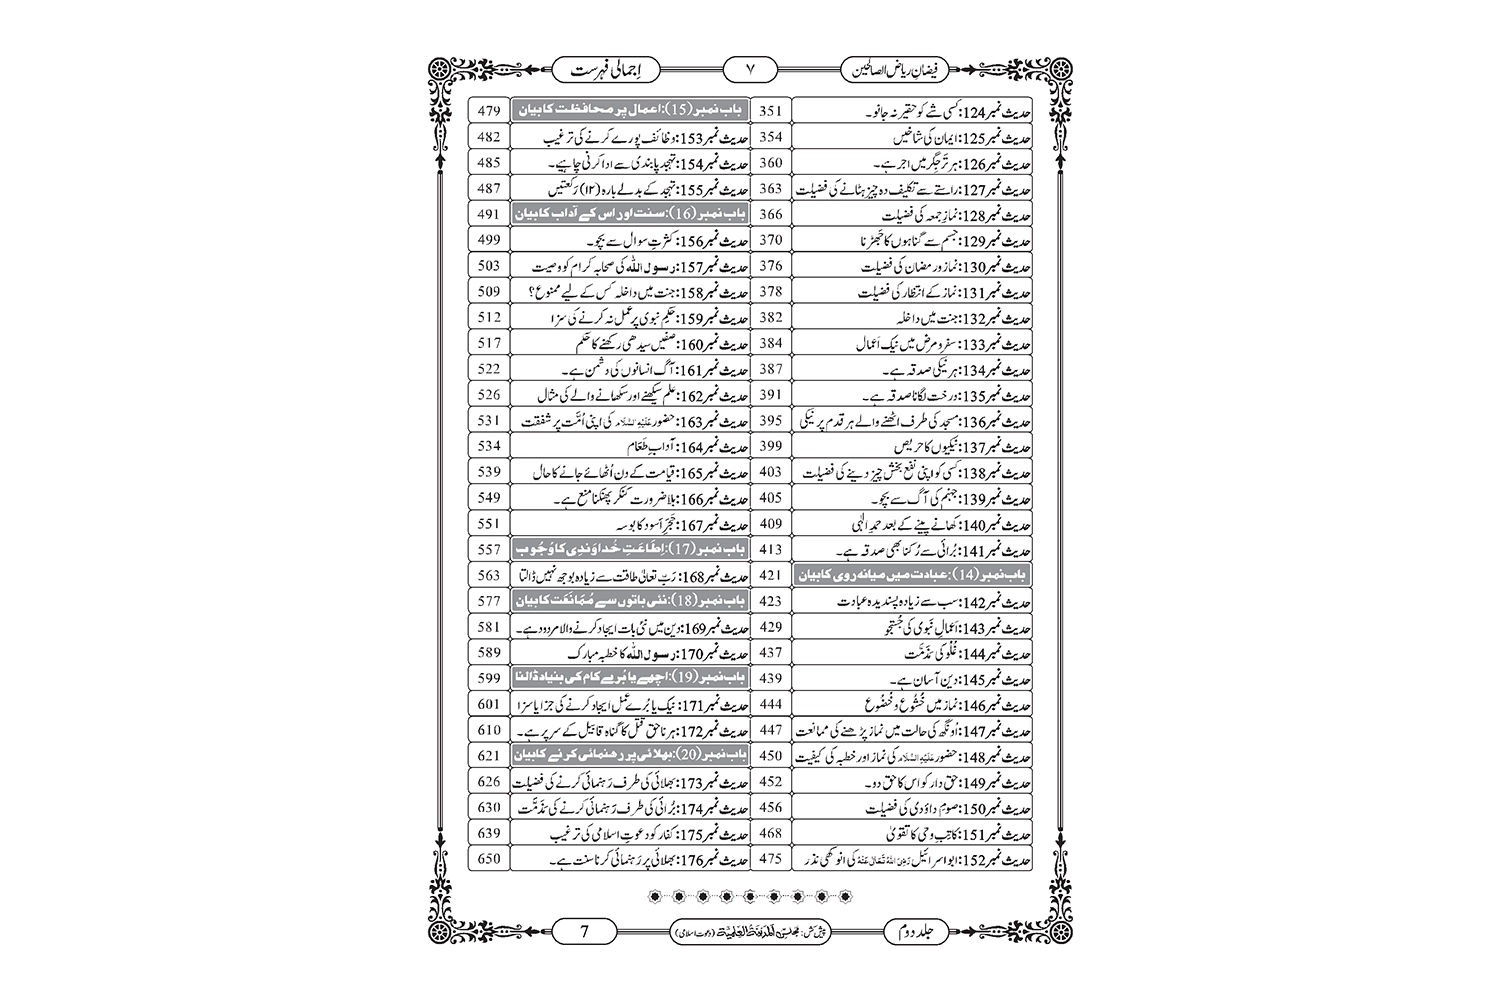 فیضانِ ریاض الصالحین
۷
اِجمالی فہرست
حدیث نمبر124: کسی شے کو حقیر نہ جانو۔ 351
حدیث نمبر125: ایمان کی شاخیں 354
حدیث نمبر126: ہر تَر جِگر میں اجر ہے۔ 360
حدیث نمبر127: راستے سے تکلیف دہ چیز ہٹانے کی فضیلت 363
حدیث نمبر128: نمازِ جمعہ کی فضیلت 366
حدیث نمبر129: جسم سے گناہوں کا جَھڑنا 370
حدیث نمبر130: نماز و رمضان کی فضیلت 376
حدیث نمبر131: نماز کے انتظار کی فضیلت 378
حدیث نمبر132: جنت میں داخلہ 382
حدیث نمبر133: سفر و مرض میں نیک اَعمال 384
حدیث نمبر134: ہر نیکی صدقہ ہے۔ 387
حدیث نمبر135: درخت لگانا صدقہ ہے۔ 391
حدیث نمبر136: مسجد کی طرف اٹھنے والے ہر قدم پر نیکی 395
حدیث نمبر137: نیکیوں کا حریص 399
حدیث نمبر138: کسی کو اپنی نفع بخش چیز دینے کی فضیلت 403
حدیث نمبر139: جہنم کی آگ سے بچو۔ 405
حدیث نمبر140: کھانے پینے کے بعد حمدِ الٰہی 409
حدیث نمبر141: بُرائی سے رُکنا بھی صدقہ ہے۔ 413
باب نمبر (14): عبادت میں میانہ روی کا بیان 421
حدیث نمبر142: سب سے زیادہ پسندیدہ عبادت 423
حدیث نمبر143: اَعمالِ نَبوی کی جُستجو 429
حدیث نمبر144: غُلُو کی مَذَمَّت 437
حدیث نمبر145: دین آسان ہے۔ 439
حدیث نمبر146: نماز میں خُشُوع و خُضُوع 444
حدیث نمبر147: اُونگھ کی حالت میں نماز پڑھنے کی ممانعت 447
حدیث نمبر148: حضور عَلَیْہِ السَّلَام کی نماز اور خطبہ کی کیفیت 450
حدیث نمبر149: حق دار کو اس کا حق دو۔ 452
حدیث نمبر150: صومِ داؤدی کی فضیلت 456
حدیث نمبر151: کاتِبِ وحی کا تقویٰ 468
حدیث نمبر152: ابو اسرائیل رَضِیَ اللہُ تَعَالٰی عَنْہُ کی انوکھی نذر 475
باب نمبر (15): اعمال پر محافظت کا بیان 479
حدیث نمبر153: وظائف پورے کرنے کی ترغیب 482
حدیث نمبر154: تہجد پابندی سے ادا کرنی چاہیے۔ 485
حدیث نمبر155: تہجد کے بدلے بارہ (۱۲) رَکعتیں 487
باب نمبر (16): سنت اور اس کے آداب کا بیان 491
حدیث نمبر156: کثرتِ سوال سے بچو۔ 499
حدیث نمبر157: رسول اللہ کی صحابہ کرام کو وصیت 503
حدیث نمبر158: جنت میں داخلہ کس کے لیے ممنوع؟ 509
حدیث نمبر159: حکمِ نبوی پر عمل نہ کرنے کی سزا 512
حدیث نمبر160: صفیں سیدھی رکھنے کا حکم 517
حدیث نمبر161: آگ انسانوں کی دشمن ہے۔ 522
حدیث نمبر162: علم سیکھنے اور سکھانے والے کی مثال 526
حدیث نمبر163: حضور عَلَیْہِ السَّلَام کی اپنی اُمَّت پر شفقت 531
حدیث نمبر164: آدابِ طَعَام 534
حدیث نمبر165: قیامت کے دن اُٹھائے جانے کا حال 539
حدیث نمبر166: بلا ضرورت کنکر پھینکنا منع ہے۔ 549
حدیث نمبر167: حَجَرِ اَسود کا بوسہ 551
باب نمبر (17): اِطَاعَتِ خُداوَندِی کا وُجُوب 557
حدیث نمبر168: رَبّ تعالیٰ طاقت سے زیادہ بوجھ نہیں ڈالتا 563
باب نمبر (18): نئی باتوں سے مُمَانَعَت کا بیان 577
حدیث نمبر169: دین میں نئی بات ایجاد کرنے والا مردود ہے۔ 581
حدیث نمبر170: رسول اللہ کا خطبہ مبارک 589
باب نمبر (19): اچھے یا بُرے کام کی بنیاد ڈالنا 599
حدیث نمبر171: نیک یا بُرے عمل ایجاد کرنے کی جزا یا سزا 601
حدیث نمبر172: ہر ناحق قتل کا گناہ قابیل کے سر پر ہے۔ 610
باب نمبر (20): بھلائی پر رہنمائی کرنے کا بیان 621
حدیث نمبر173: بھلائی کی طرف رَہنمائی کرنے کی فضیلت 626
حدیث نمبر174: بُرائی کی طرف رَہنمائی کرنے کی مَذَمَّت 630
حدیث نمبر175: کفار کو دعوتِ اسلامی کی ترغیب 639
حدیث نمبر176: بھلائی پر رَہنمائی کرنا سنت ہے۔ 650
جلد دوم
پیش کش: مجلس المدینۃ العلمیۃ (دعوت اسلامی)
7